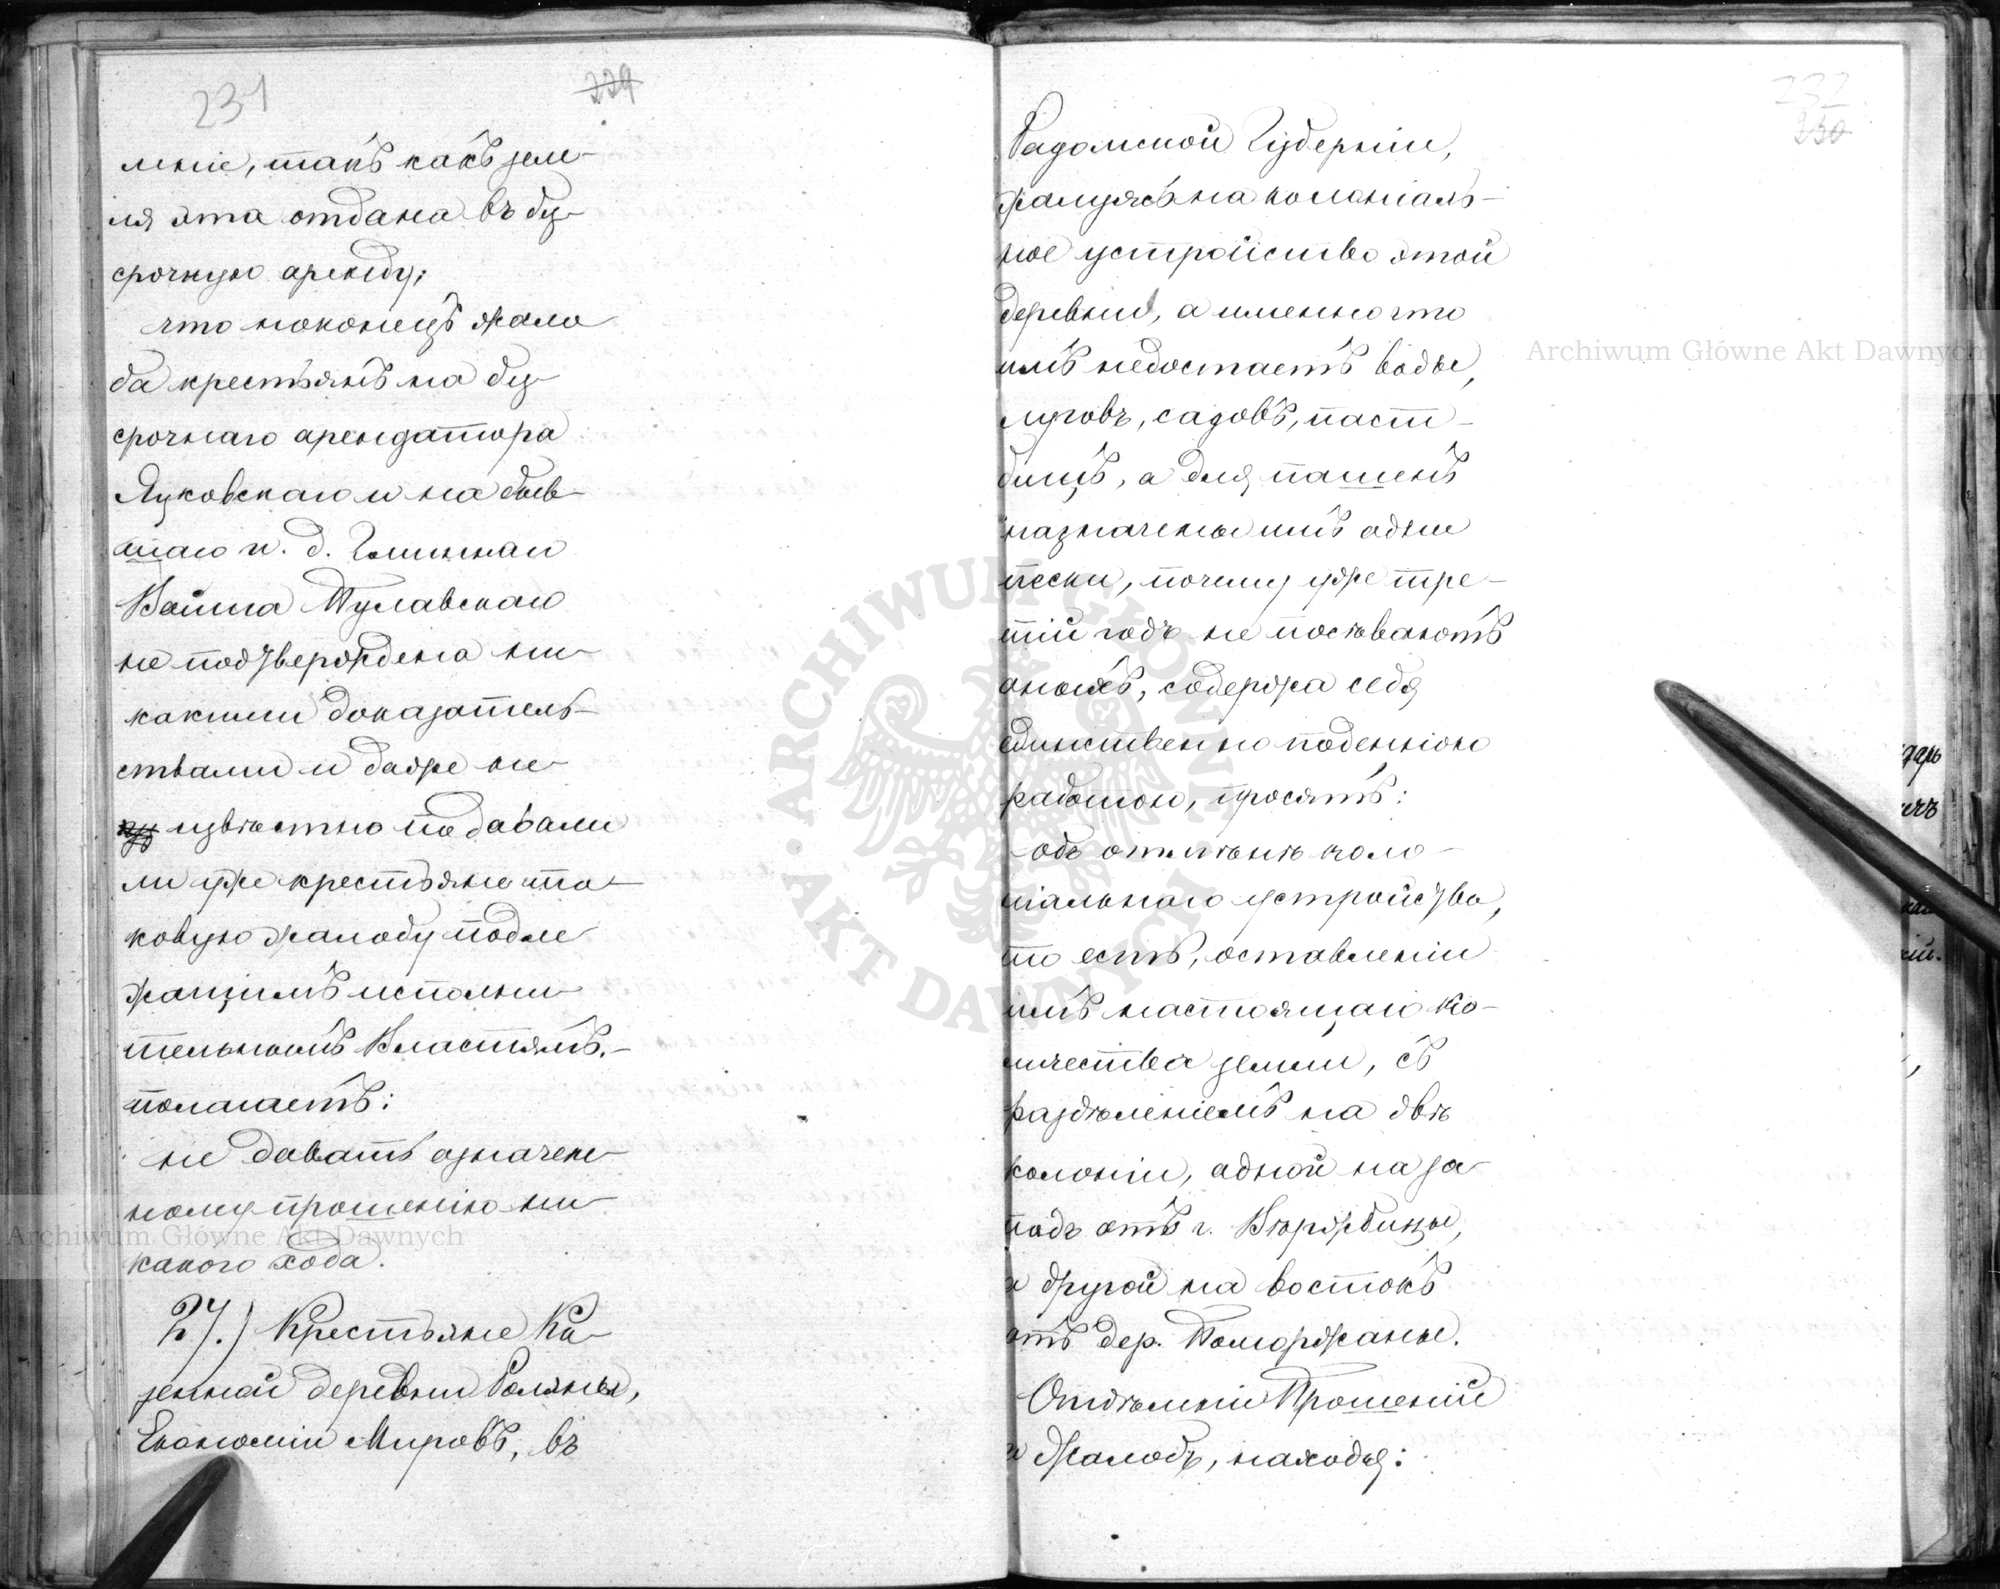 231
229
леніе, такъ какъ зем-
ля эта отдана въ без-
срочную аренду;
что наконецъ жало
ба крестьянъ на без-
срочнаго арендатора
Яцковскаго и на быв-
шаго и. д. Гминнаго
Войта Тулавскаго
не подтверждена ни
какими доказатель-
ствами и даже не
извѣстно подавали
ли уже крестьяне та-
ковую жалобу подле
жащимъ исполни
тельнымъ Властямъ.-
полагаетъ:
не давать означен
ному прошенію ни
какого хода.
27.) Крестьяне Ка-
зенной деревни Поляны,
Економіи Мировъ, въ
232
230
Радомской Губерніи,
жалуясь на колоніаль-
ное устройство этой
деревни, а именно что
имъ недостаетъ воды,
луговъ, садовъ, паст-
бищъ, а для пашенъ
назначены имъ одни
пески, почему уже тре-
тій годъ не посѣваютъ
оныхъ, содержа себя
единственно поденною
работою, просятъ:
объ отмѣнѣ коло-
ніальнаго устройства,
то есть, оставленіи
имъ настоящаго ко-
личества земли, съ
раздѣленіемъ на двѣ
колоніи, одной на за-
падъ отъ г. Вѣржбицы,
и другой на востокъ
отъ дер. Поморжаны.
Отдѣленіе Прошеній
и Жалобъ, находя:
Archiwum Główne Akt Dawnych
Archiwum Główne Akt Dawnych
ARCHIWUM GŁÓWNE AKT DAWNYCH